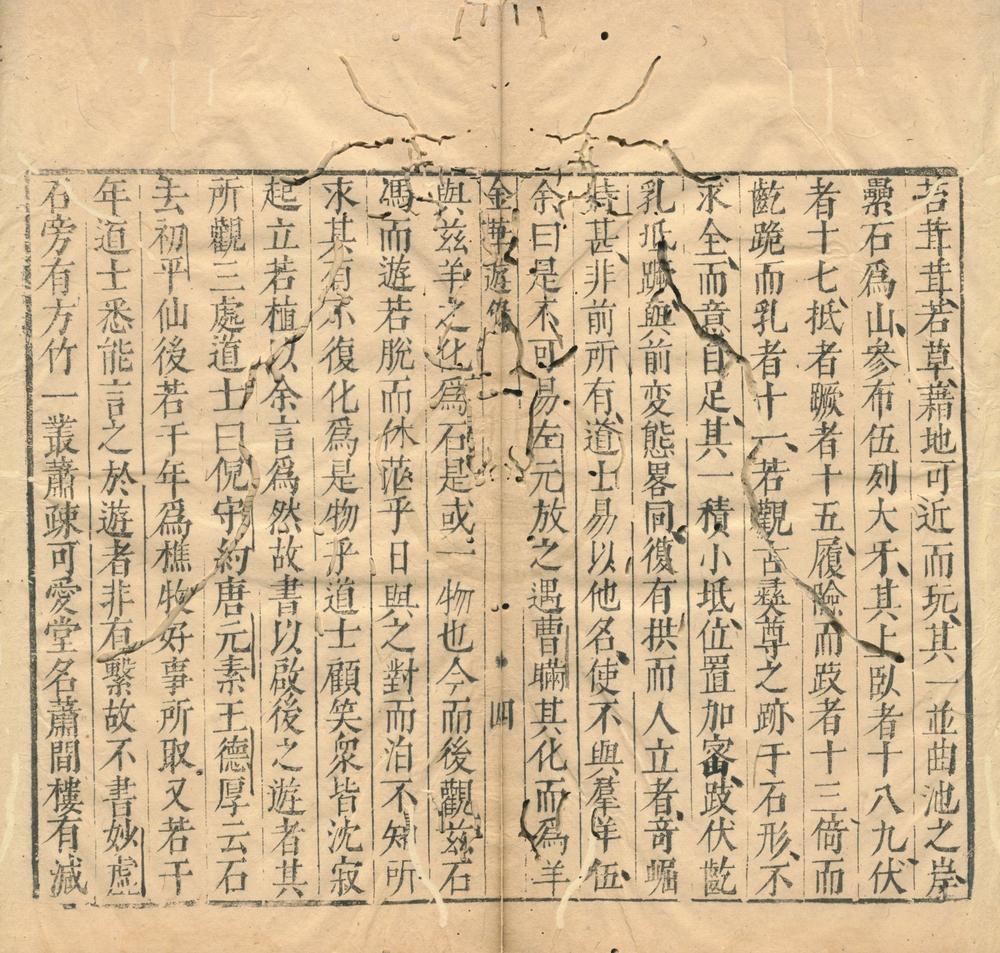 苔茸茸若草藉地可近而玩其一並曲池之岸
纍石爲山參布伍列大牙其上臥者十八九伏
者十七抵者蹶者十五履險而跂者十三倚而
齕跪而乳者十一若觀古彝尊之跡于石形不
求全而意自足其一積小坻位置加密跂伏齕
乳坻蹶與前変態畧同復有拱而人立者竒崛
特甚非前所有道士易以他名使不與羣羊伍
余曰是不可易左元放之遇曹瞞其化而爲羊
金華遊錄 四
與兹羊之化爲石是或一物也今而後觀兹石
馮而遊若脫而休茫乎日與之對而泊不知所
求其有不復化爲是物乎道士顧笑衆皆沈寂
起立若植以余言爲然故書以啟後之遊者其
所觀三處道士曰倪守約唐元素王德厚云石
去初平仙後若干年爲樵牧好事所取又若干
年道士悉能言之於遊者非有繫故不書妙虛
石旁有方竹一叢蕭疎可愛堂名蕭閒樓有減